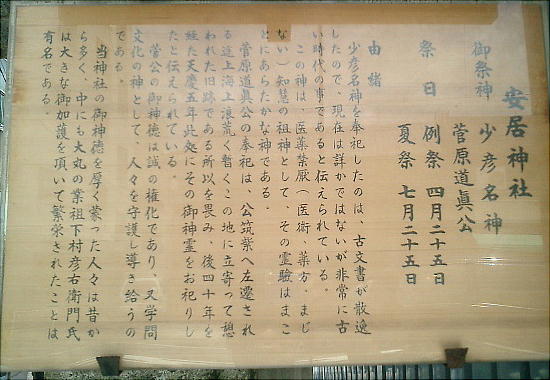 安居神社
御祭神 少彦名神
菅原道眞公
祭日 例祭 四月二十五日
夏祭 七月二十五日
由緒
少彦名神を奉祀したのは、古文書が散逸
したので、現在は詳かではないが非常に古
い時代の事であると伝えられている。
この神は、医薬禁厭(医術、薬方、まじ
ない)知慧の祖神として、その霊驗はまこ
とにあらたかな神である。
菅原道眞公の奉祀は、公筑紫へ左遷され
る途上海上浪荒く暫くこの地に立寄って憩
われた旧跡である所以を畏み、後四十年を
経た天慶五年此処にその御神霊をお祀りし
たと伝えられている。
菅公の御神徳は誠の権化であり、又学問
文化の神として、人々を守護し導き給うの
である。
当神社の御神徳を厚く蒙った人々は昔か
ら多く、中にも大丸の業祖下村彦右衛門氏
は大きな御加護を頂いて繁栄されたことは
有名である。